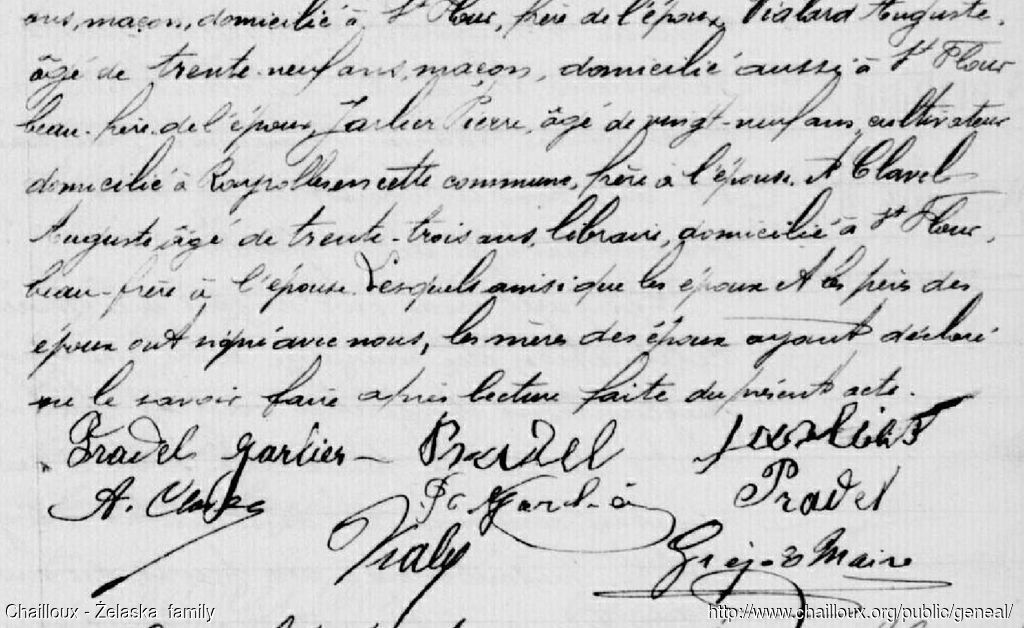 ans, maçon, domicilié à St Flour, frère de l'époux, Vialard Auguste,
âgé de trente-neuf ans, maçon, domicilié aussi à St Flour
beau-frère de l'époux, Jarlier Pierre, âgé de vingt-neuf ans, cultivateur
domicilié à en cette commune, frère à l'épouse. Et Clavel
Auguste, âgé de trente-trois ans, libraire, domicilié à St Flour,
beau-frère à l'épouse. Lesquels ainsi que les époux et les pères des
époux ont signé avec nous, les mères des époux ayant déclaré
ne le savoir faire après lecture faite du présent acte.
Pradel Jarlier Pradel Jarlier
A. Clavel Pradel
Maire
Chailloux - Želaska family
http://www.chailloux.org/public/geneal/